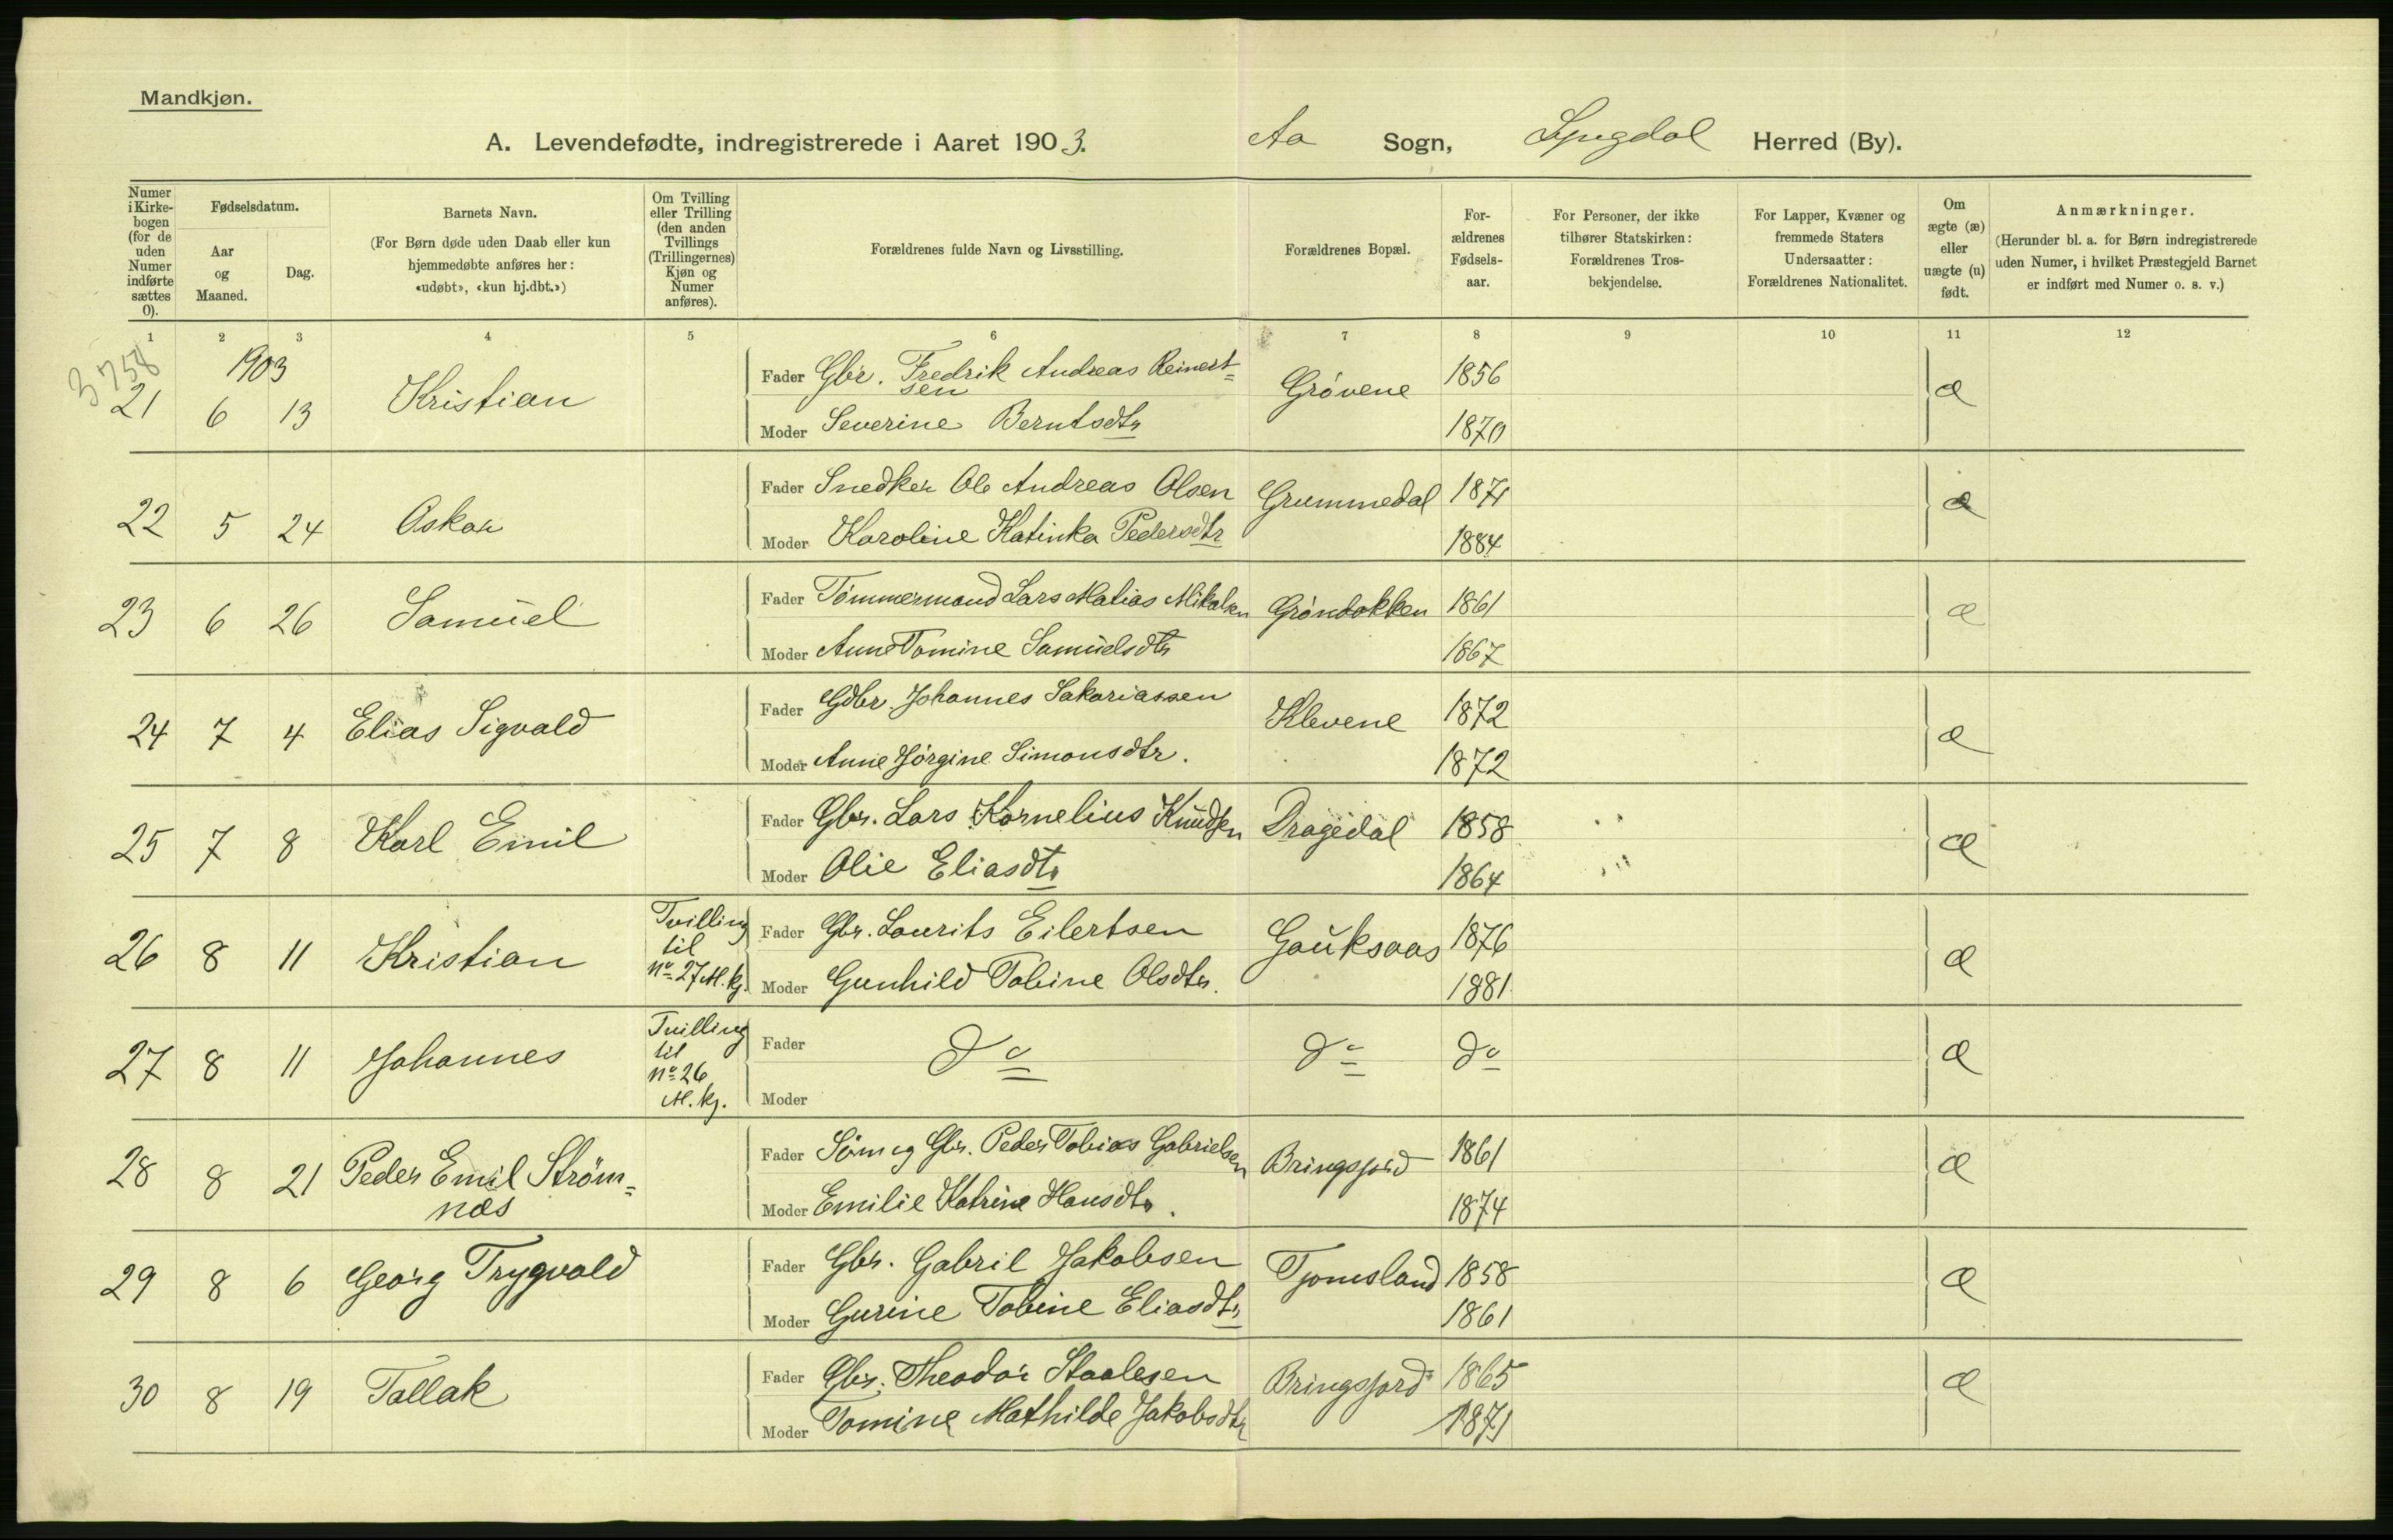 Mandkjøn.
A. Levendefødte, indregistrerede i Aaret 1903. Aa Sogn, Lyngdal Herred (By).
Numer i Kirkebogen (for de uden Numer indførte sættes 0).
Fødselsdatum.
Aar og Maaned.
Dag.
Barnets Navn.
(For Børn døde uden Daab eller kun hjemmedøbte anføres her: «udøbt», «kun hj.dbt.»)
Om Tvilling eller Trilling (den anden Tvillings (Trillingernes) Kjøn og Numer anføres).
Forældrenes fulde Navn og Livsstilling.
Forældrenes Bopæl.
Forældrenes Fødselsaar.
For Personer, der ikke tilhører Statskirken: Forældrenes Trosbekjendelse.
For Lapper, Kvæner og fremmede Staters Undersaatter: Forældrenes Nationalitet.
Om ægte (æ) eller uægte (u) født.
Anmærkninger.
(Herunder bl. a. for Børn indregistrerede uden Numer, i hvilket Præstegjeld Barnet er indført med Numer o. s. v.)
1 2 3 4 5 6 7 8 9 10 11 12
3758
1903
21 6 13 Kristian Fader Gbr. Fredrik Andreas Reinert= Grövene 1856 æ
sen
Moder Severine Berntsdtr 1870
22 5 24 Oskar Fader Snedker Ole Andreas Olsen Grummedal 1871 æ
Moder Karoline Katinka Pedersdtr 1884
23 6 26 Samuel Fader Tömmermand Lars Matias Mikalsen Gröndokken 1861 æ
Moder Anne Tomine Samuelsdtr 1867
24 7 4 Elias Sigvald Fader Gdbr. Johannes Sakariassen Klevene 1872 æ
Moder Anne Jörgine Simonsdtr. 1872
25 7 8 Karl Emil Fader Gbr. Lars Kornelius Knudsen Dragedal 1858 æ
Moder Olie Eliasdtr 1864
26 8 11 Kristian Tvilling til No 27 M.kj. Fader Gbr. Laurits Eilertsen Gauksaas 1876 æ
Moder Gunhild Tobine Olsdtr. 1881
27 8 11 Johannes Tvilling til No 26 M.kj. Fader do do do æ
Moder
28 8 21 Peder Emil Ström= Fader Söm og Gbr. Peder Tobias Gabrielsen Bringsjord 1861 æ
næs Moder Emilie Katrine Hansdtr. 1874
29 8 6 Georg Trygvald Fader Gbr. Gabril Jakobsen Tjomsland 1858 æ
Moder Gurine Tobine Eliasdtr 1861
30 8 19 Tallak Fader Gbr. Theodor Staalesen Bringsjord 1865 æ
Moder Tomine Mathilde Jakobsdtr 1871